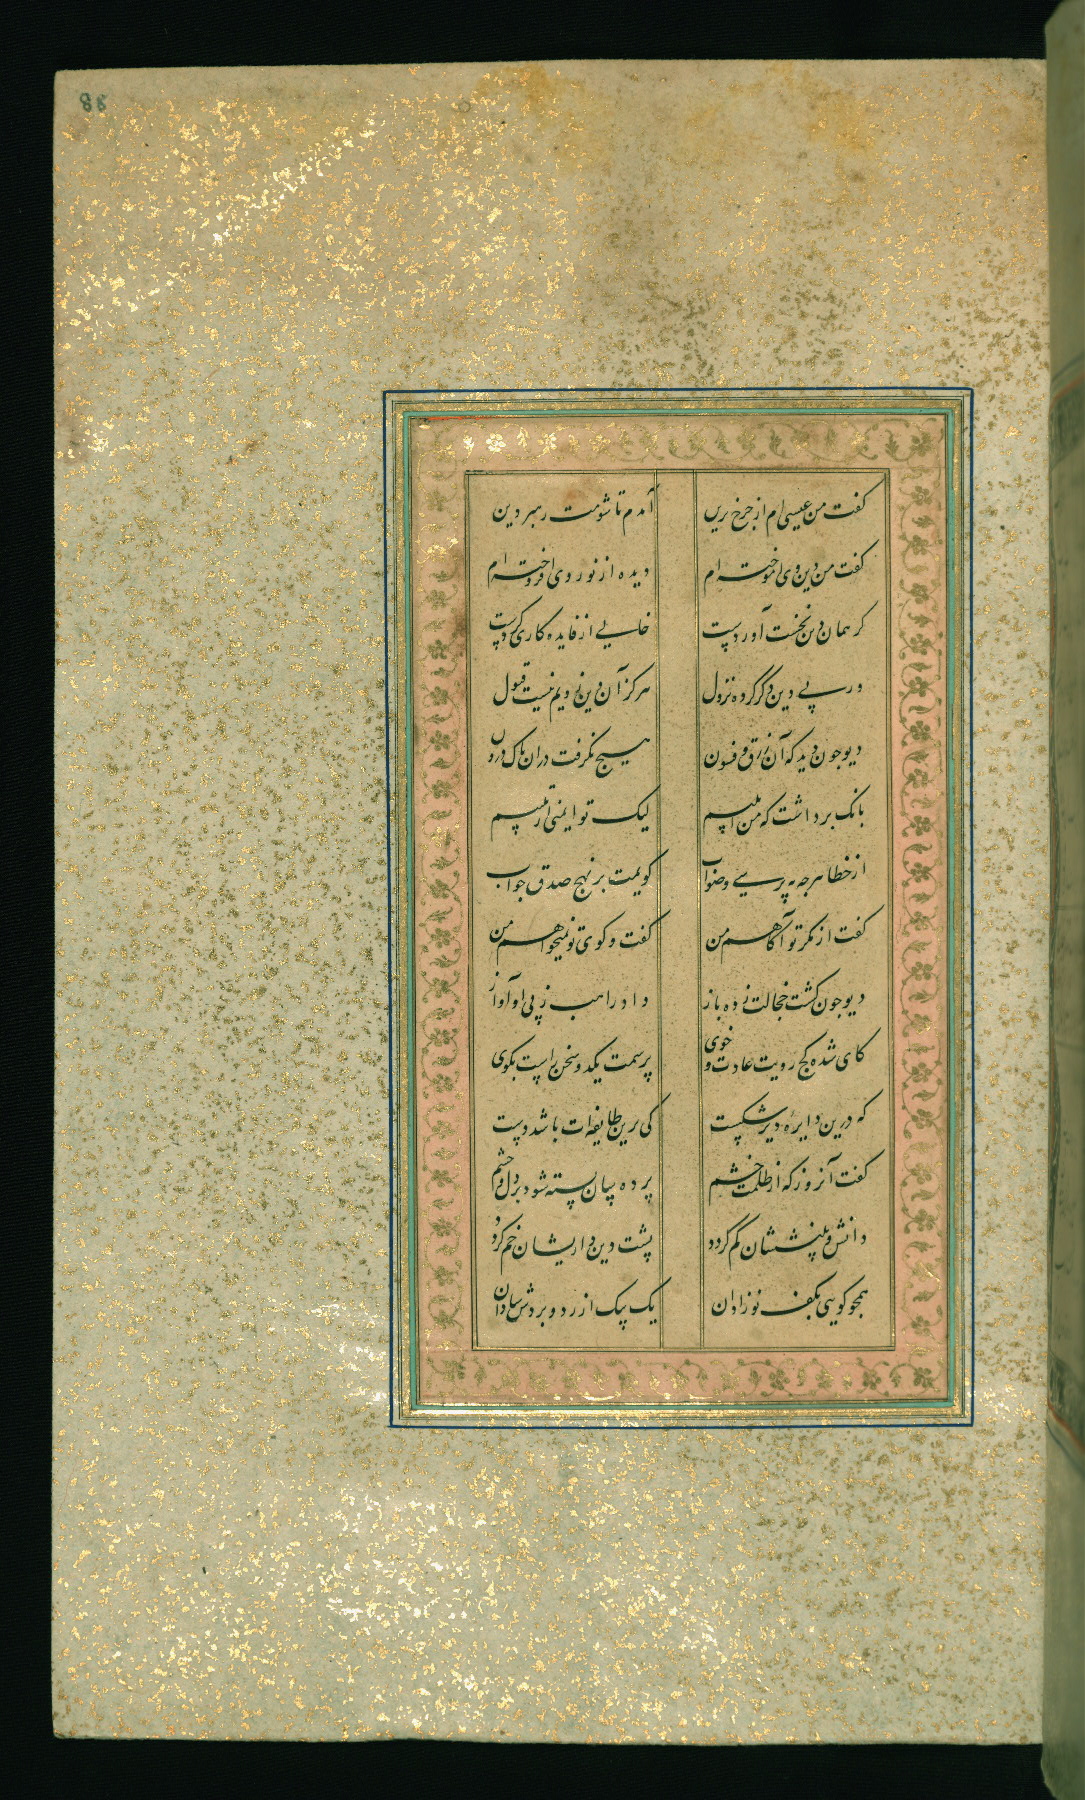 88
گفت من عیسی ام از چرخ برین آمدم تا شومت رهبر دین
گفت من دین وی آموخته ام دیده از نور وی افروخته ام
گر همان دین نخست آوردست خالی از فایده کاری کردست
ور پی دین دگر کرده نزول هرگز آن دین ز ویم نیست قبول
دیو چون دید که آن زرق و فسون هیچ نگرفت در آن پاک درون
بانگ برداشت که من ابلیسم لیک تو ایمنی از تلبیسم
از خطا هرچه بپرسی و صواب گویمت بر نهج صدق جواب
گفت از مکر تو آگاهم من گفت و گوی تو نمیخواهم من
دیو چون گشت خجالت زده باز داد راهب ز پی او آواز
کای شده کج رویت عادت و خوی پرسمت یک دو سخن راست بگوی
که درین دایره دیر شکست کی برین طایفه ات باشد دست
گفت آن روز که از ظلمت خشم پرده سان بسته شود بر دل و چشم
دانش و بینششان کم گردد پشت دین داریشان خم گردد
همچو گویی بکف نوزادان یک بیک از رد و بردش شادان